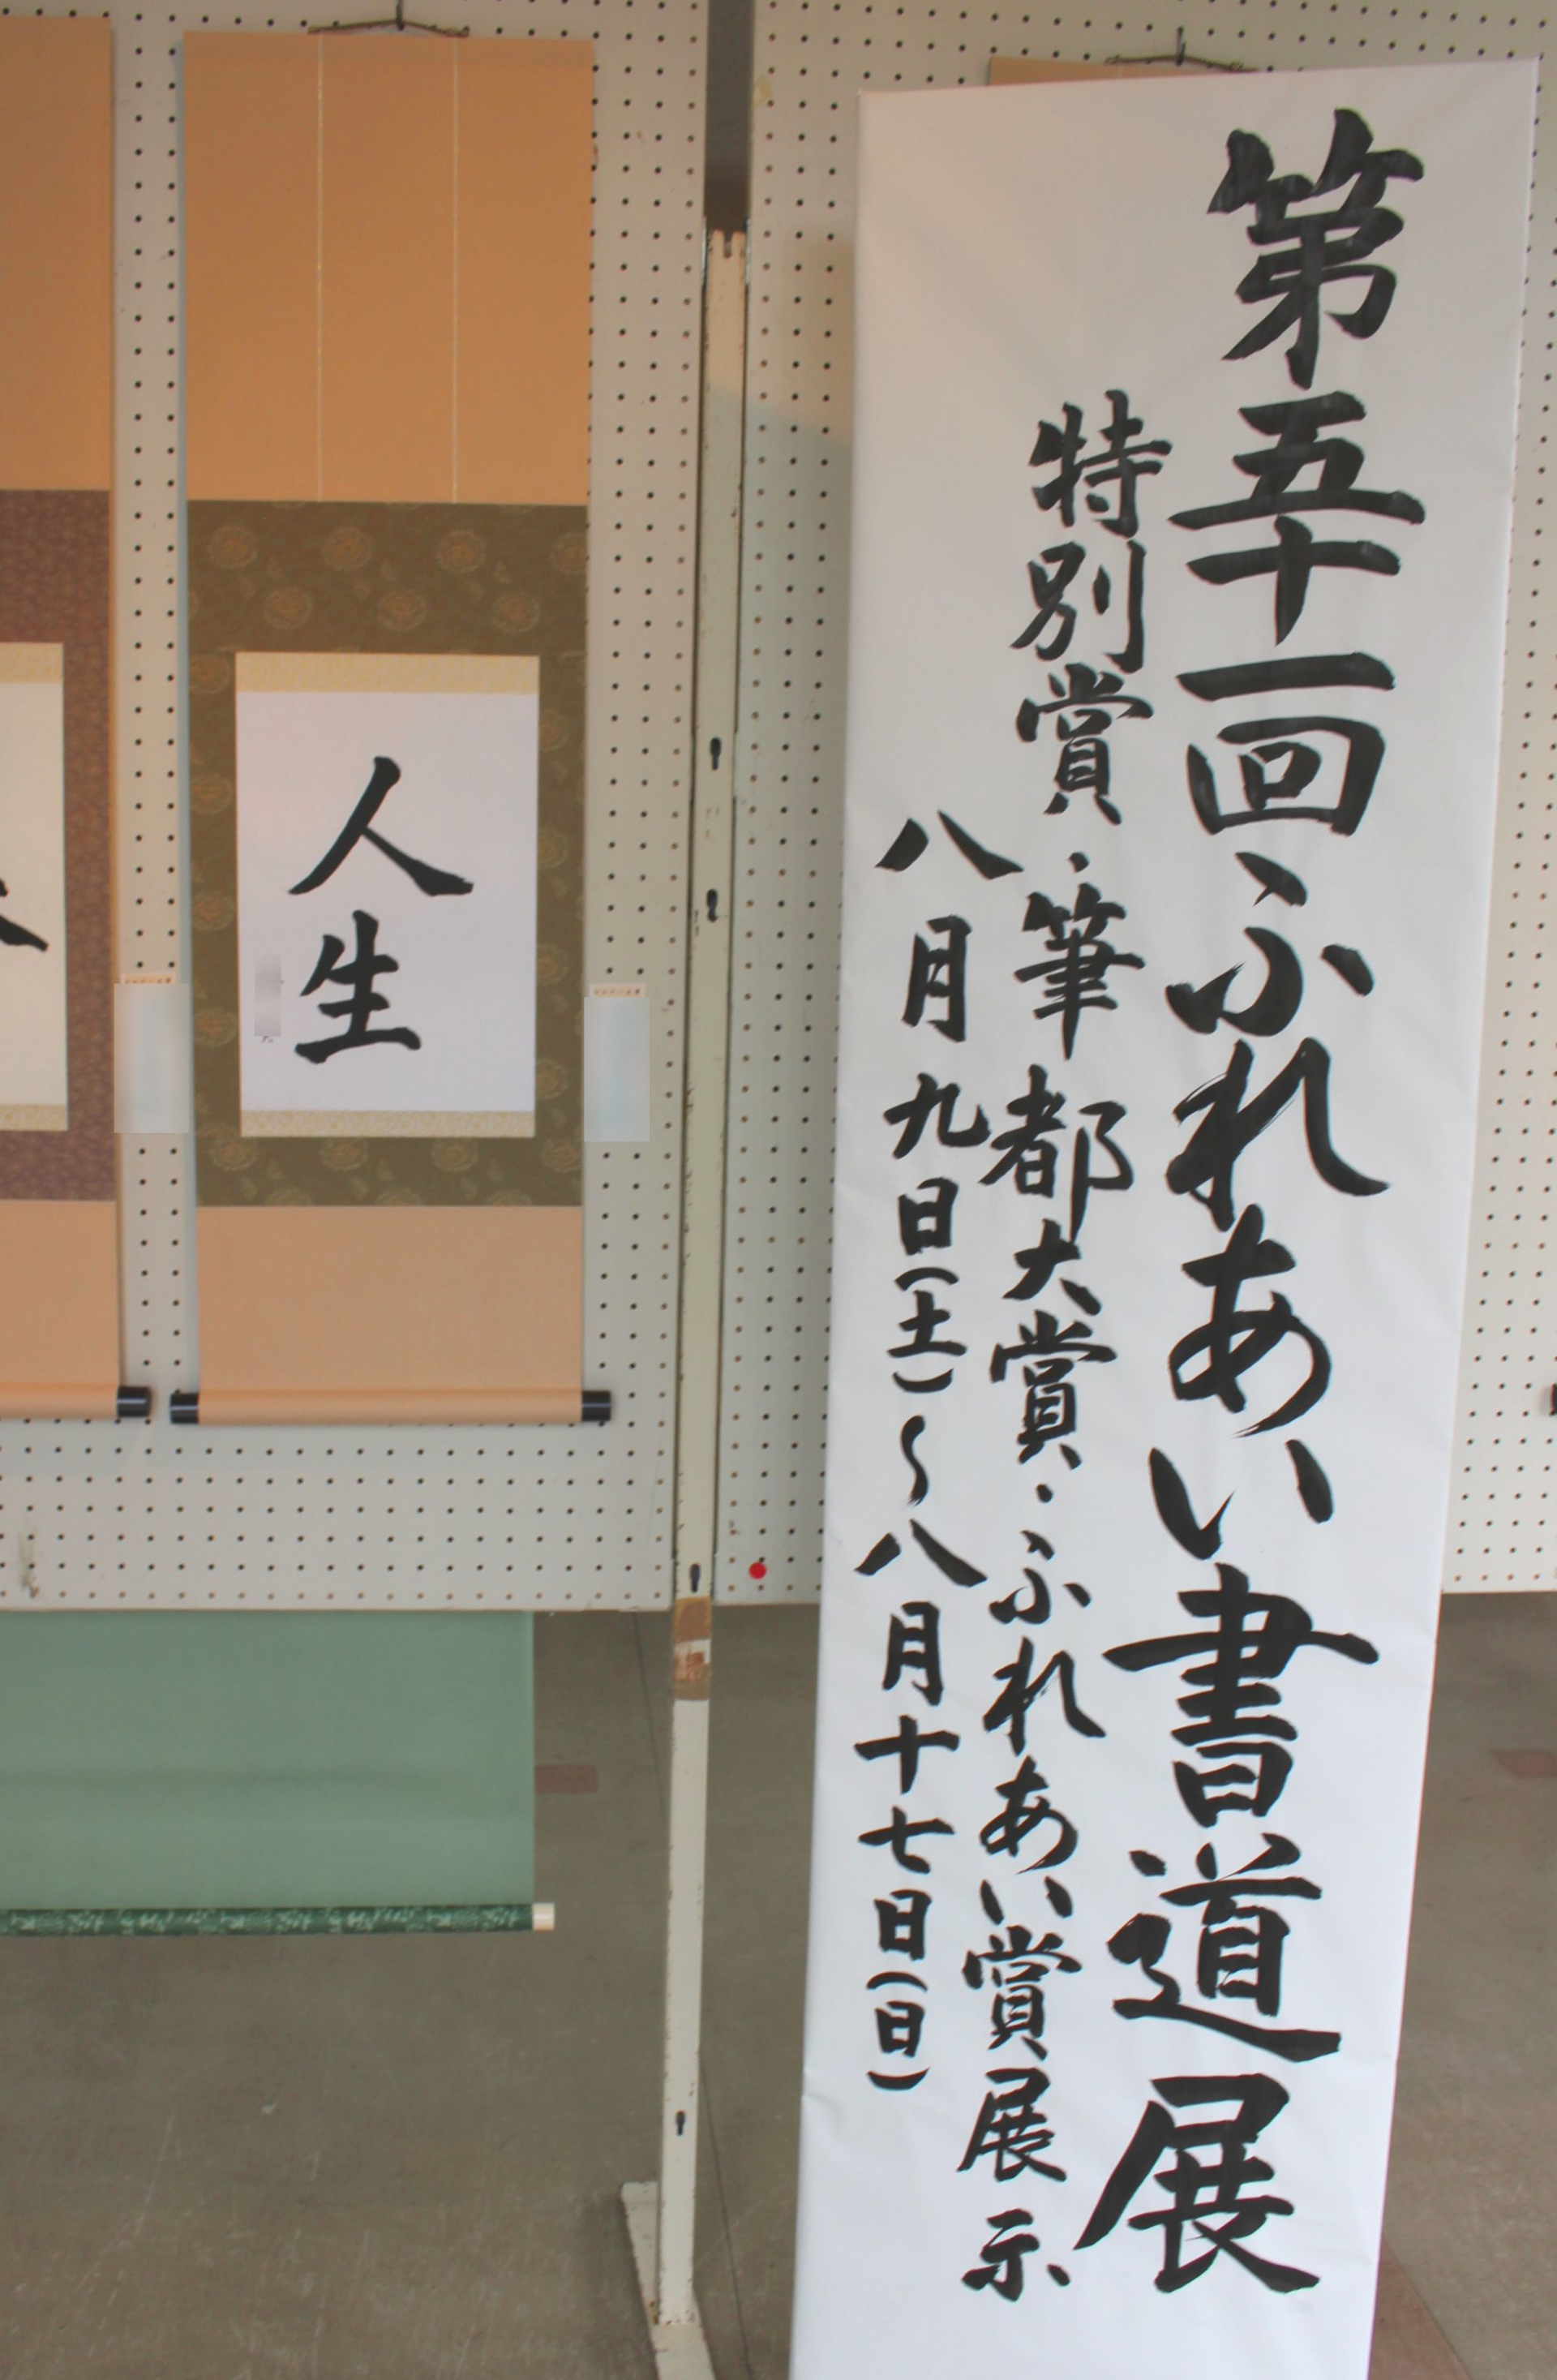 第五十一回ふれあい書道展
特別賞・筆都大賞・ふれあい賞展示
八月九日(土)～八月十七日(日)
人生